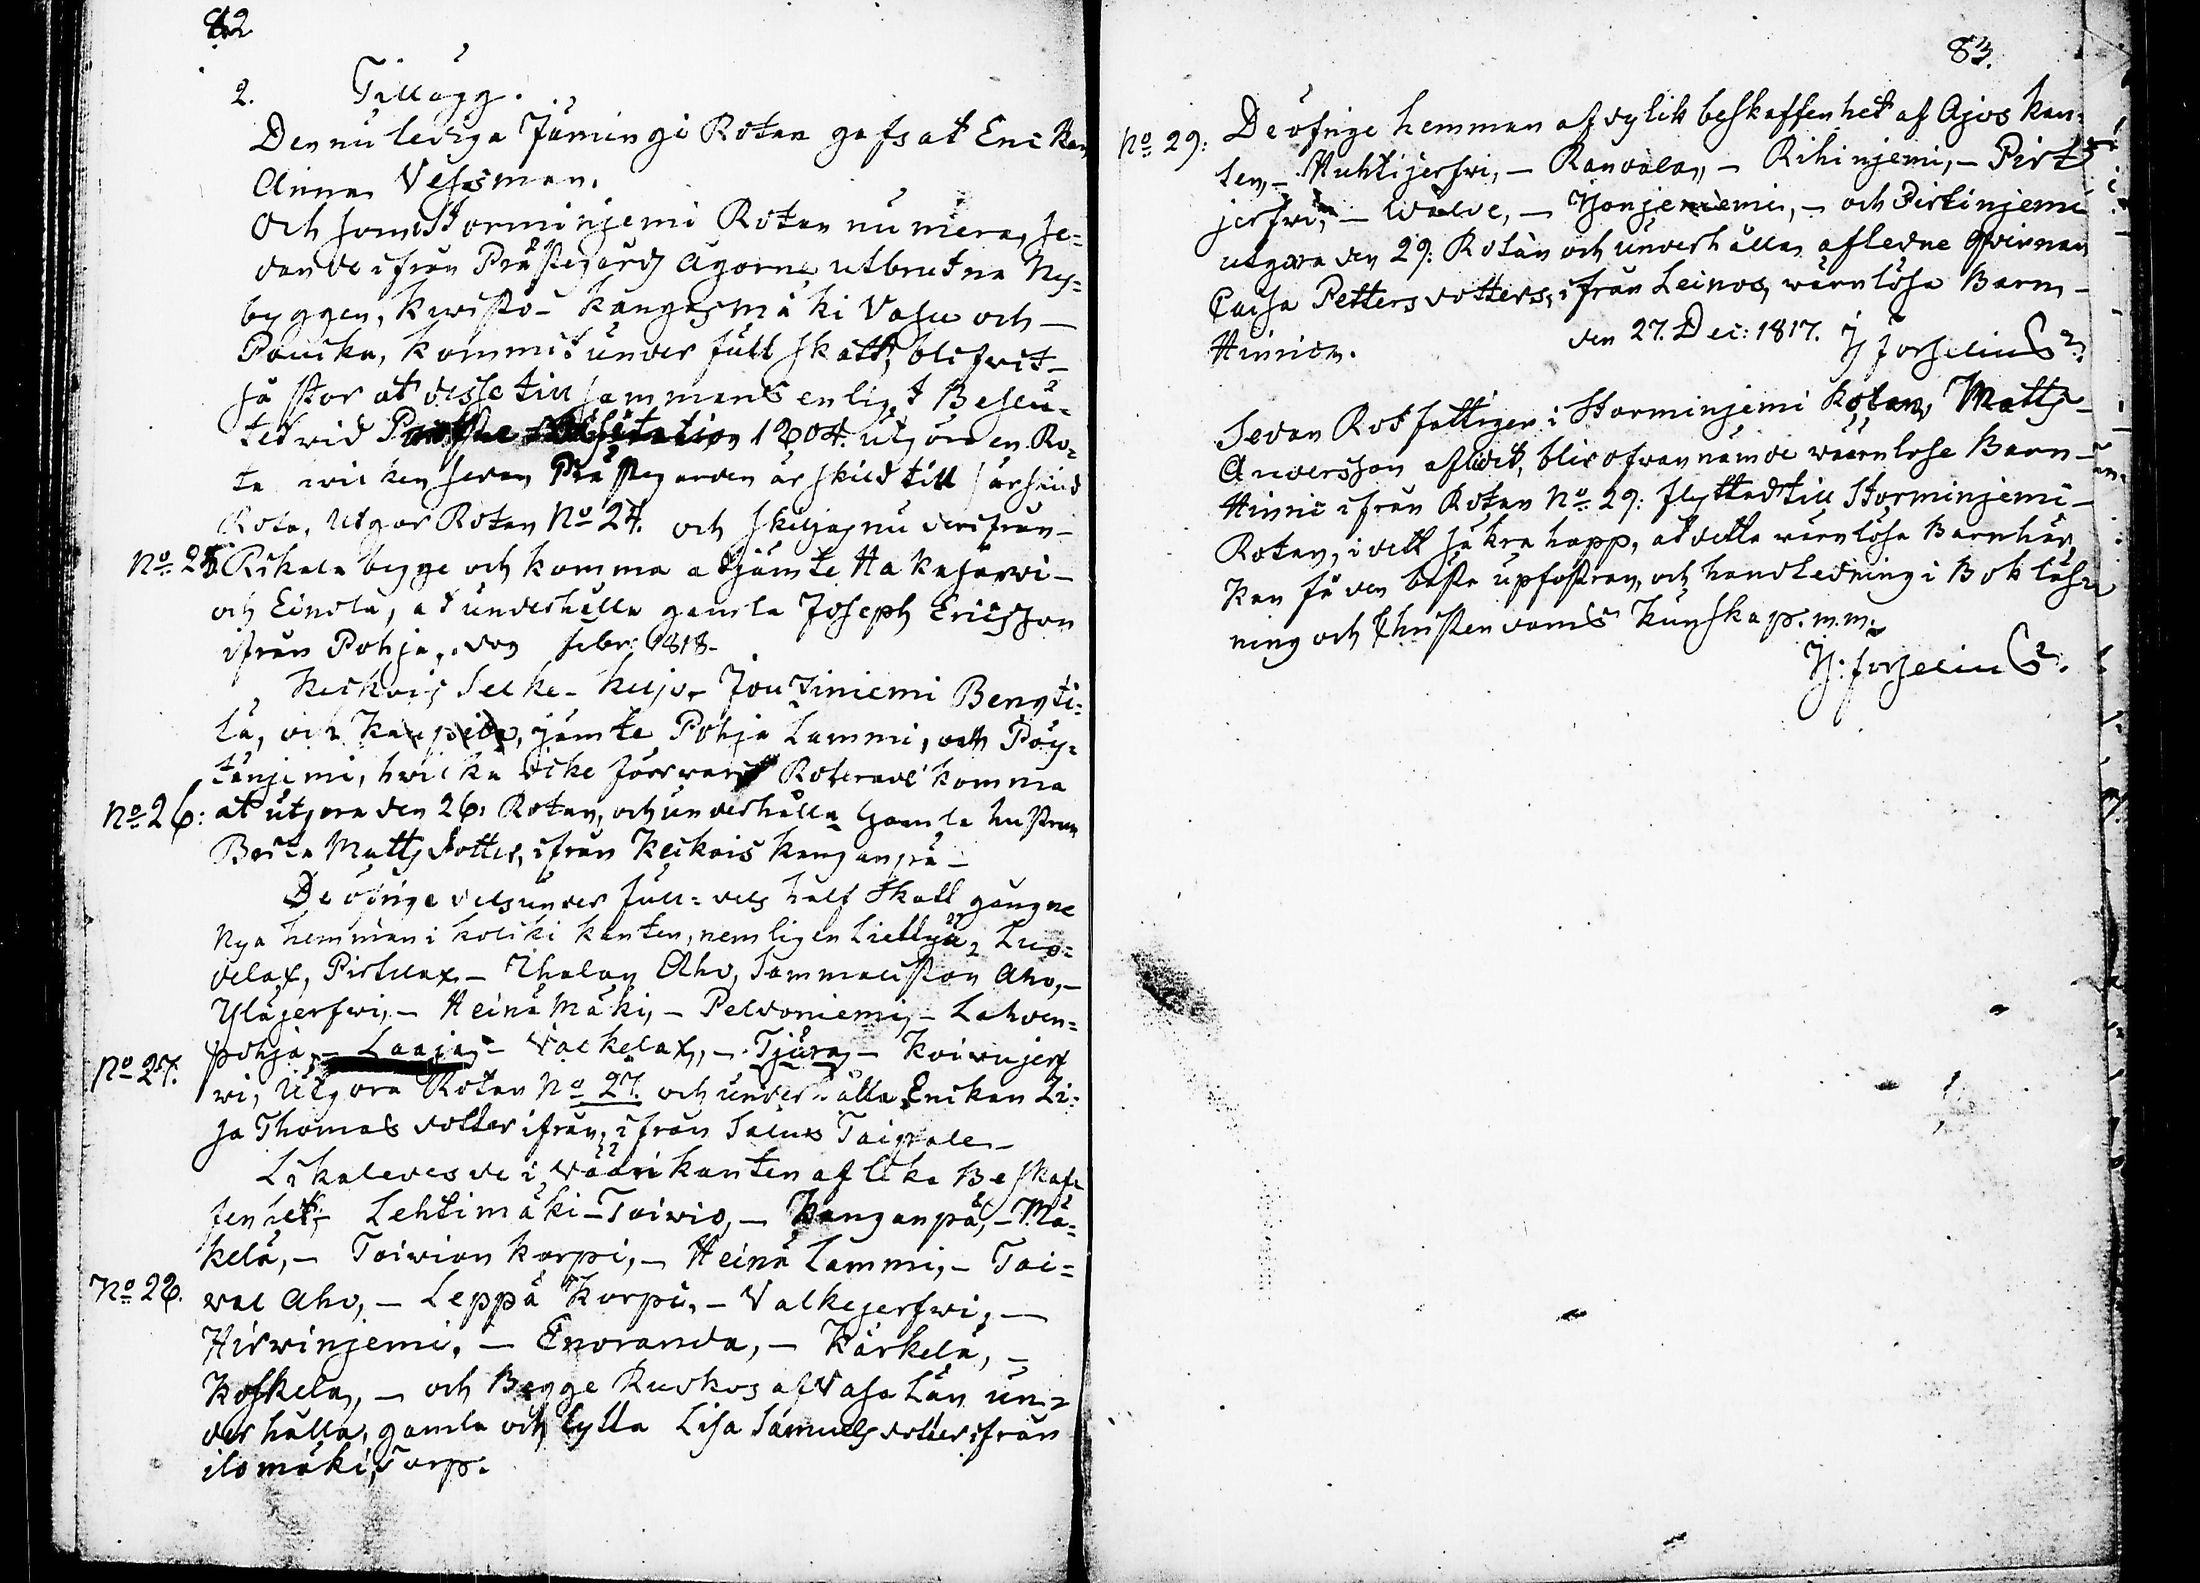 82
2. Tillägg.
Den nu lediga Jämingi Rotan gafs åt Enkan
Anna Vessman.
Och som Storminjemi Rotan nu mera, se=
dan de ifrån Prästegårds Ägorne utbrutna Ny=
byggen, Kwisto- Kangasmäki Vasu och
Paucka, kommit under full skatt, blifwit
så stor at desse tillsammans enligt Beslu=
tet wid 1804. utgöra en Ro=
ta wilken sedan Prästegården är skild till särskild
Rota, Utgör Rotan No 24. och skiljas nu derifrån
No 25 Rikala begge och komma at jämte Hakajärwi
och Einola, at underhålla gamla Joseph Ericsson
ifrån Pohja, dog febr: 1818.
Keckois Selke- Kuljo- Joutiniemi Bengti=
lä, jämte Pohja Lammi, och Pöy=
tänjemi, hwilka icke förr warit Roterade komma
No 26: at utgöra den 26: Rotan, och underhålla Gamla hustrun
Brita Matts dotter, ifrån Keckois Kanganpä
De öfrige dels under full= dels half Skatt gångne
Nya hemman i Kolcki kanten, nemligen Liellyä, Luo=
delax, Pirtulax - Uhalan Aho, Sammaliston Aho,
Yläjerfwi, - Heinä Mäki, - Peldoniemi, - Lahden=
No 27. pohja, - Laaja, - Valkelax, - Tjura, - Koiwujerf
wi, Utgöra Rotan No 27. och underhålla Enkan Li=
sa Thomas dotter ifrån, ifrån Salus Taipale
Likaledes de i Wääri kanten af lika Beskaf=
fenhet, Lehtimäki - Toiwio, - Kanganpä, - Mä=
kelä, - Toiwion korpi, - Heinä Lammi, - Tai=
No 28. wal Aho, - Leppä Korpi, - Valkejerfwi, -
Hirwinjemi, - Enoranda, - Kärkelä, -
Koskela, - och Begge Ruokos af Vasa Län un=
derhålla, gamla och lytta Lisa Samuels dotter ifrån
ilomäki, Torp.
83.
No 29: De öfrige hemman af dylik beskaffenhet af Ajos kan=
ten, - Muhtijerfwi, - Randala, - Rihinjemi, - Pirt
jerfwi, - Walde, - och Pirtinjemi
utgöra den 29: Rotan och underhålla aflidne qwinnan
Caisa Petters dotters, ifrån Leinos, wärnlösa Barn
Hinric.
den 27. Dec: 1817. H forselius
Sedan Rotfattigen i Storminjemi Rotan, Matts
Andersson aflidit, blir ofwannämde wärnlöse Barn
Hinric ifrån Rotan No 29: flyttadt till Storminjemi
Rotan, i dett säkra hopp, at detta wärnlösa Barn här,
kan få den bästa upfostran, och handledning i Bok läs=
ning och Christendoms Kunskap. m. m.
H: forselius